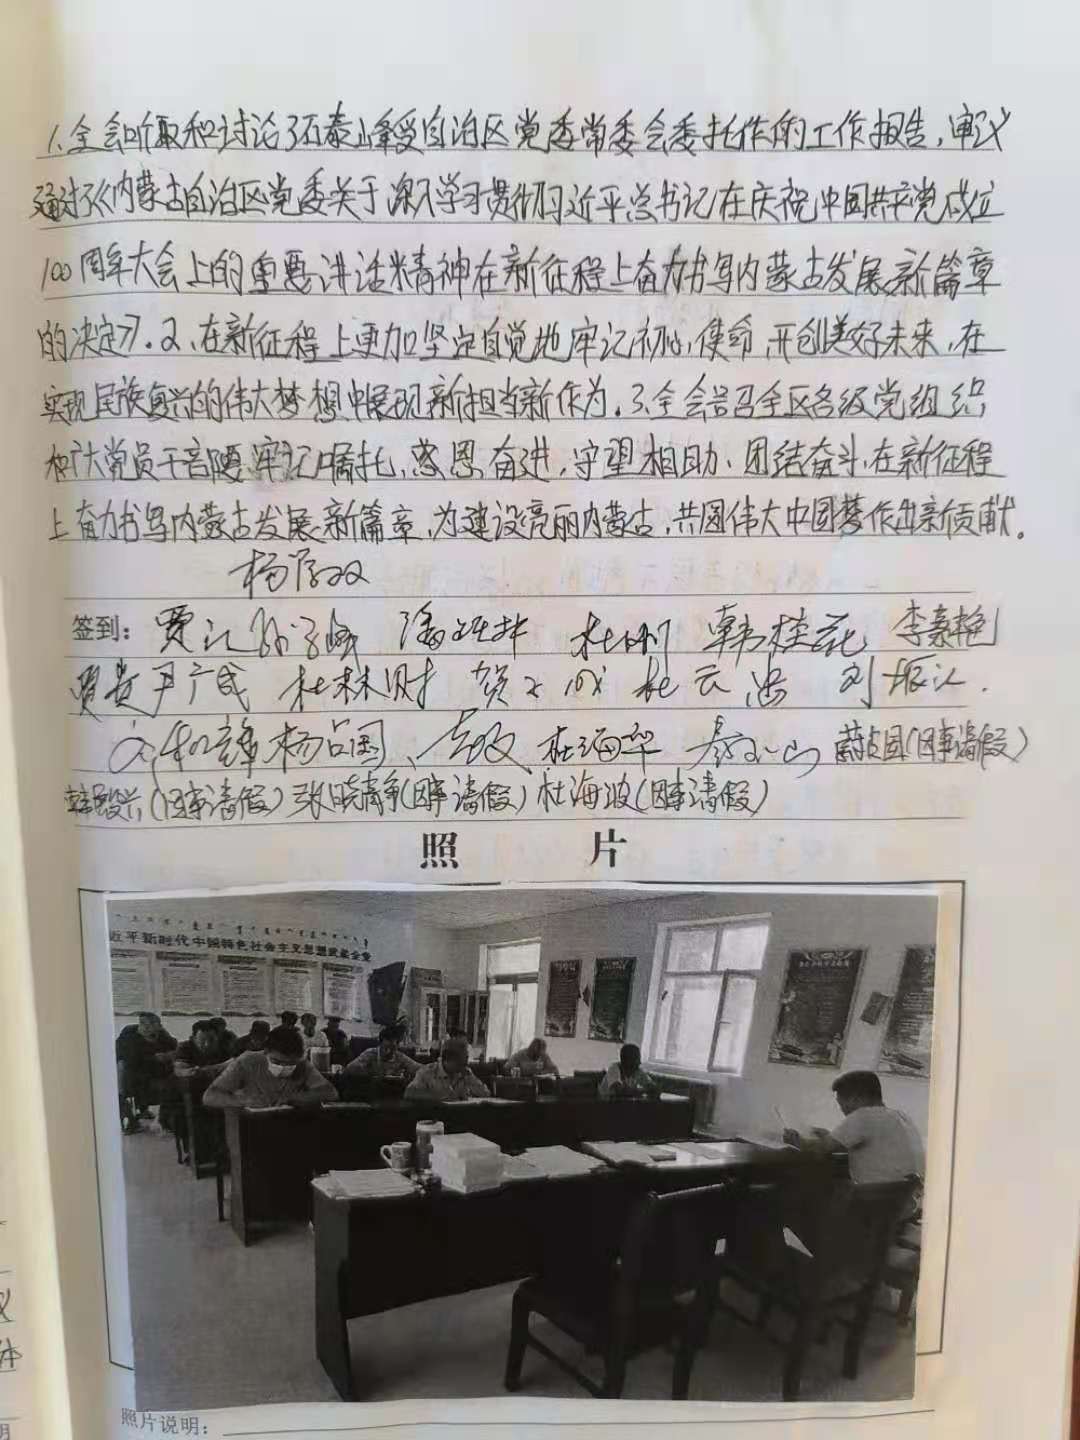 1.全会听取和讨论了石泰峰受自治区党委常委会委托作的工作报告,审议
通过了《内蒙古自治区党委关于深入学习贯彻习近平总书记在庆祝中国共产党成立
100周年大会上的重要讲话精神在新征程上奋力书写内蒙古发展新篇章
的决定》.2、在新征程上更加坚定自觉地牢记初心、使命,开创美好未来,在
实现民族复兴的伟大梦想中展现新担当新作为.3、全会号召全区各级党组织
和广大党员干部要牢记嘱托、感恩奋进,守望相助、团结奋斗,在新征程
上奋力书写内蒙古发展新篇章,为建设亮丽内蒙古,共圆伟大中国梦作出新贡献.
签到: 韩桂花 李素艳
尹广成 杜林财 杜云忠 刘振江
杨占国 杜海军 (因事请假)
(因事请假) 张晓静(因事请假) 杜海波(因事请假)
照 片
近平新时代中国特色社会主义思想武装全党
照片说明: